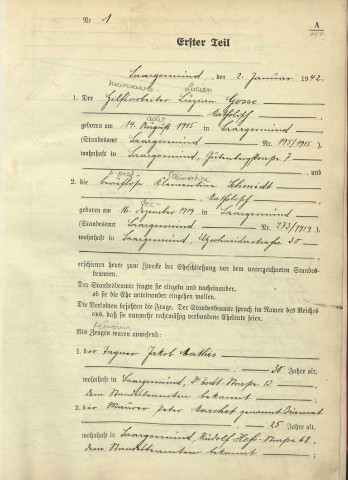 Nr. 1
A
Erster Teil
Saargemünd, den 2. Januar 1942.
manoeuvre Lucien
1. Der Hilfsarbeiter Luzian Gosse
katholisch
août
geboren am 14. August 1915 in Saargemünd
(Standesamt Saargemünd Nr. 195/1915)
wohnhaft in Saargemünd, Gutenbergstraße 7
und
s. prof. Clémentine
2. die berufslose Klementine Schmidt
katholisch
déc
geboren am 16. Dezember 1919 in Saargemünd
(Standesamt Saargemünd Nr. 273/1919)
wohnhaft in Saargemünd, Utzschneiderstraße 30
erschienen heute zum Zwecke der Eheschließung vor dem unterzeichneten Standes-
beamten.
Der Standesbeamte fragte sie einzeln und nacheinander,
ob sie die Ehe miteinander eingehen wollen.
Die Verlobten bejahten die Frage. Der Standesbeamte sprach im Namen des Reichs
aus, daß sie nunmehr rechtmäßig verbundene Eheleute seien.
témoins
Als Zeugen waren anwesend:
1. der Tagner Jakob Mathis
30 Jahre alt,
wohnhaft in Saargemünd, Dr Todt Straße 12
dem Standesbeamten bekannt
2. der Maurer Peter Marchet genannt
25 Jahre alt,
wohnhaft in Saargemünd, Rudolf Heß-Straße 68
dem Standesbeamten bekannt